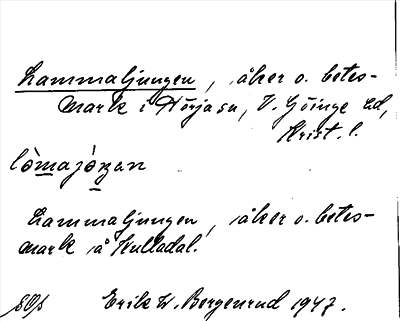 Lammaljungen, åker o. betes-
mark i Hörja sn, V. Göinge hd,
Krist. l.
Lammaljungen, åker o. betes-
mark å Kulladal.
Erik W. Bergenrud 1947.